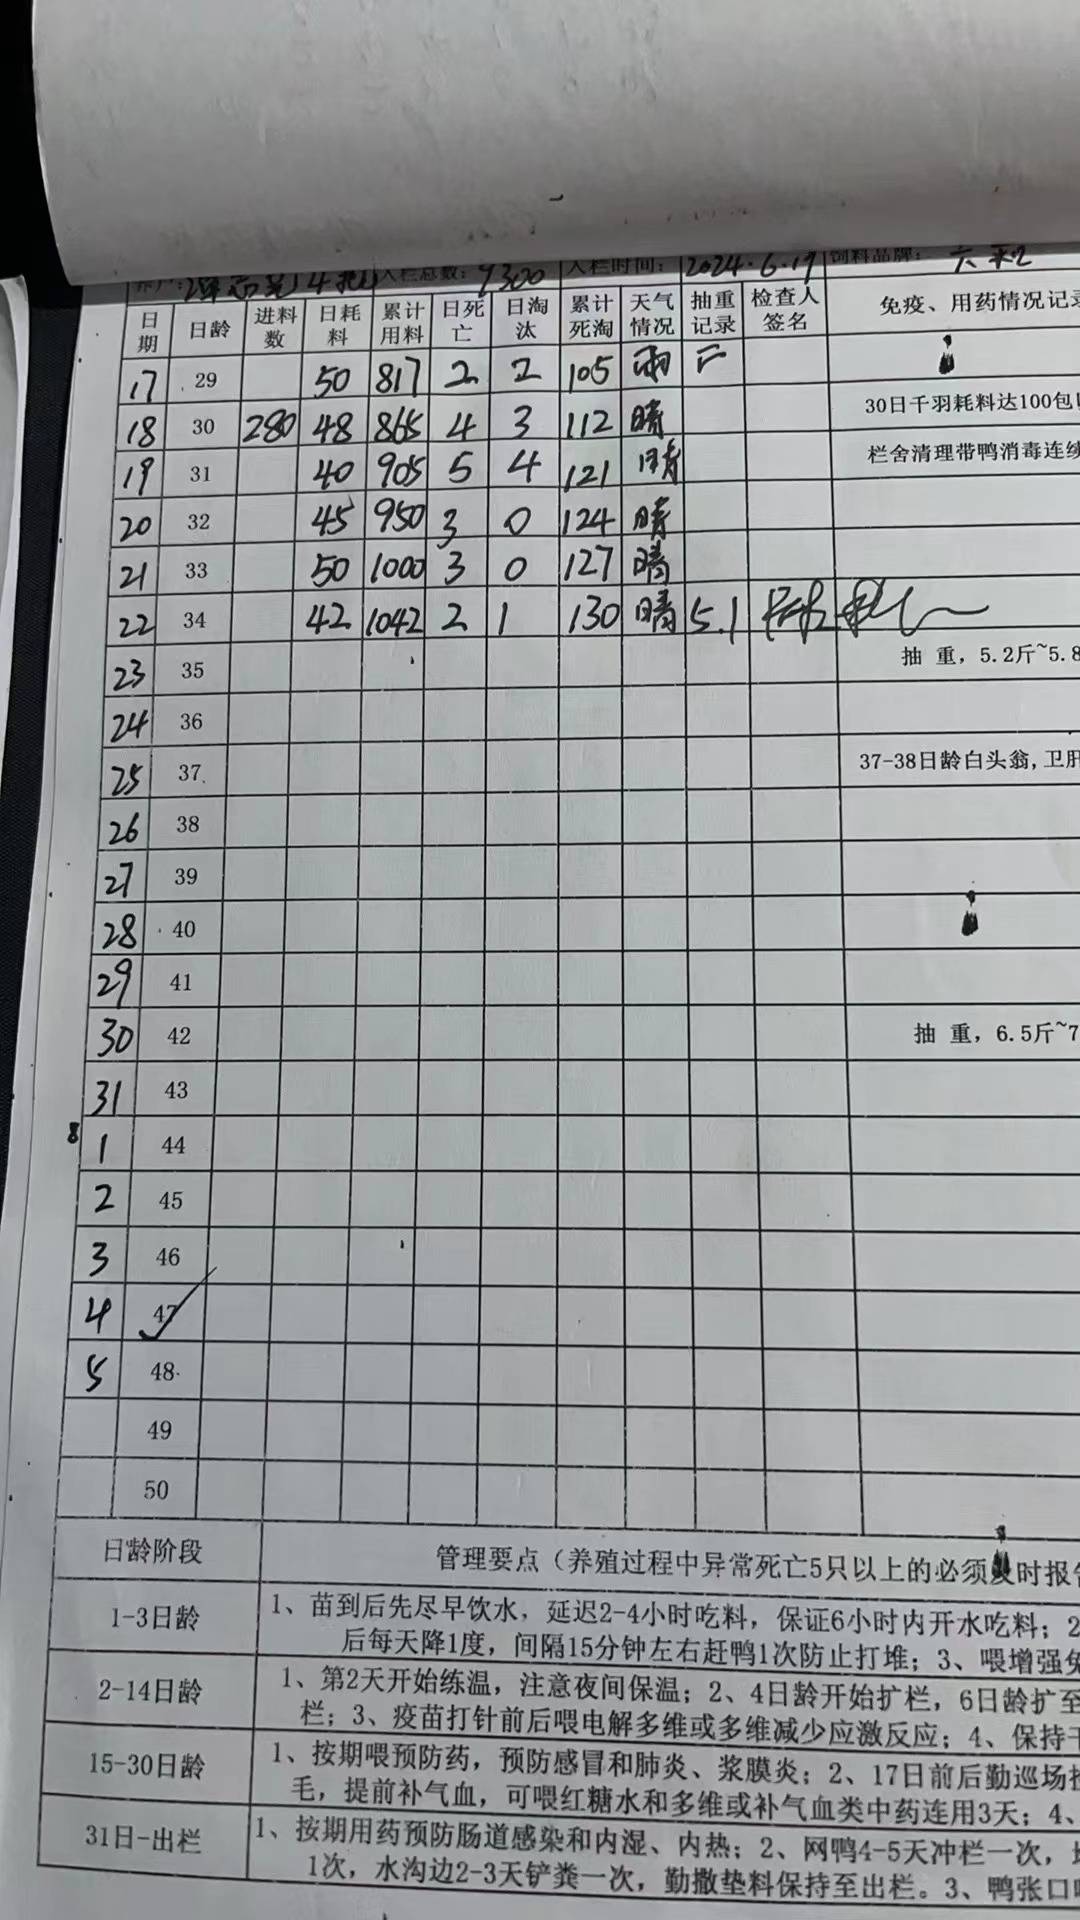 入栏总数：9300 入栏时间：2024.6.19 饲料品牌：六和
日期 日龄 进料数 日耗料 累计用料 日死亡 日淘汰 累计死淘 天气情况 抽重记录 检查人签名 免疫、用药情况记
17 29 50 817 2 2 105 雨
18 30 280 48 865 4 3 112 晴 30日千羽耗料达100包
19 31 40 905 5 4 121 晴 栏舍清理带鸭消毒连续
20 32 45 950 3 0 124 晴
21 33 50 1000 3 0 127 晴
22 34 42 1042 2 1 130 晴 5.1
23 35 抽 重，5.2斤~5.8
24 36
25 37 37-38日龄白头翁,卫肝
26 38
27 39
28 40
29 41
30 42 抽 重，6.5斤~7
31 43
8
1 44
2 45
3 46
4 47
5 48
49
50
日龄阶段 管理要点（养殖过程中异常死亡5只以上的必须及时报告
1-3日龄 1、苗到后先尽早饮水，延迟2-4小时吃料，保证6小时内开水吃料；2
后每天降1度，间隔15分钟左右赶鸭1次防止打堆；3、喂增强免
2-14日龄 1、第2天开始练温，注意夜间保温；2、4日龄开始扩栏，6日龄扩至
栏；3、疫苗打针前后喂电解多维或多维减少应激反应；4、保持干
15-30日龄 1、按期喂预防药，预防感冒和肺炎、浆膜炎；2、17日前后勤巡场
毛，提前补气血，可喂红糖水和多维或补气血类中药连用3天；4、
31日-出栏 1、按期用药预防肠道感染和内湿、内热；2、网鸭4-5天冲栏一次，
1次，水沟边2-3天铲粪一次，勤撒垫料保持至出栏。3、鸭张口